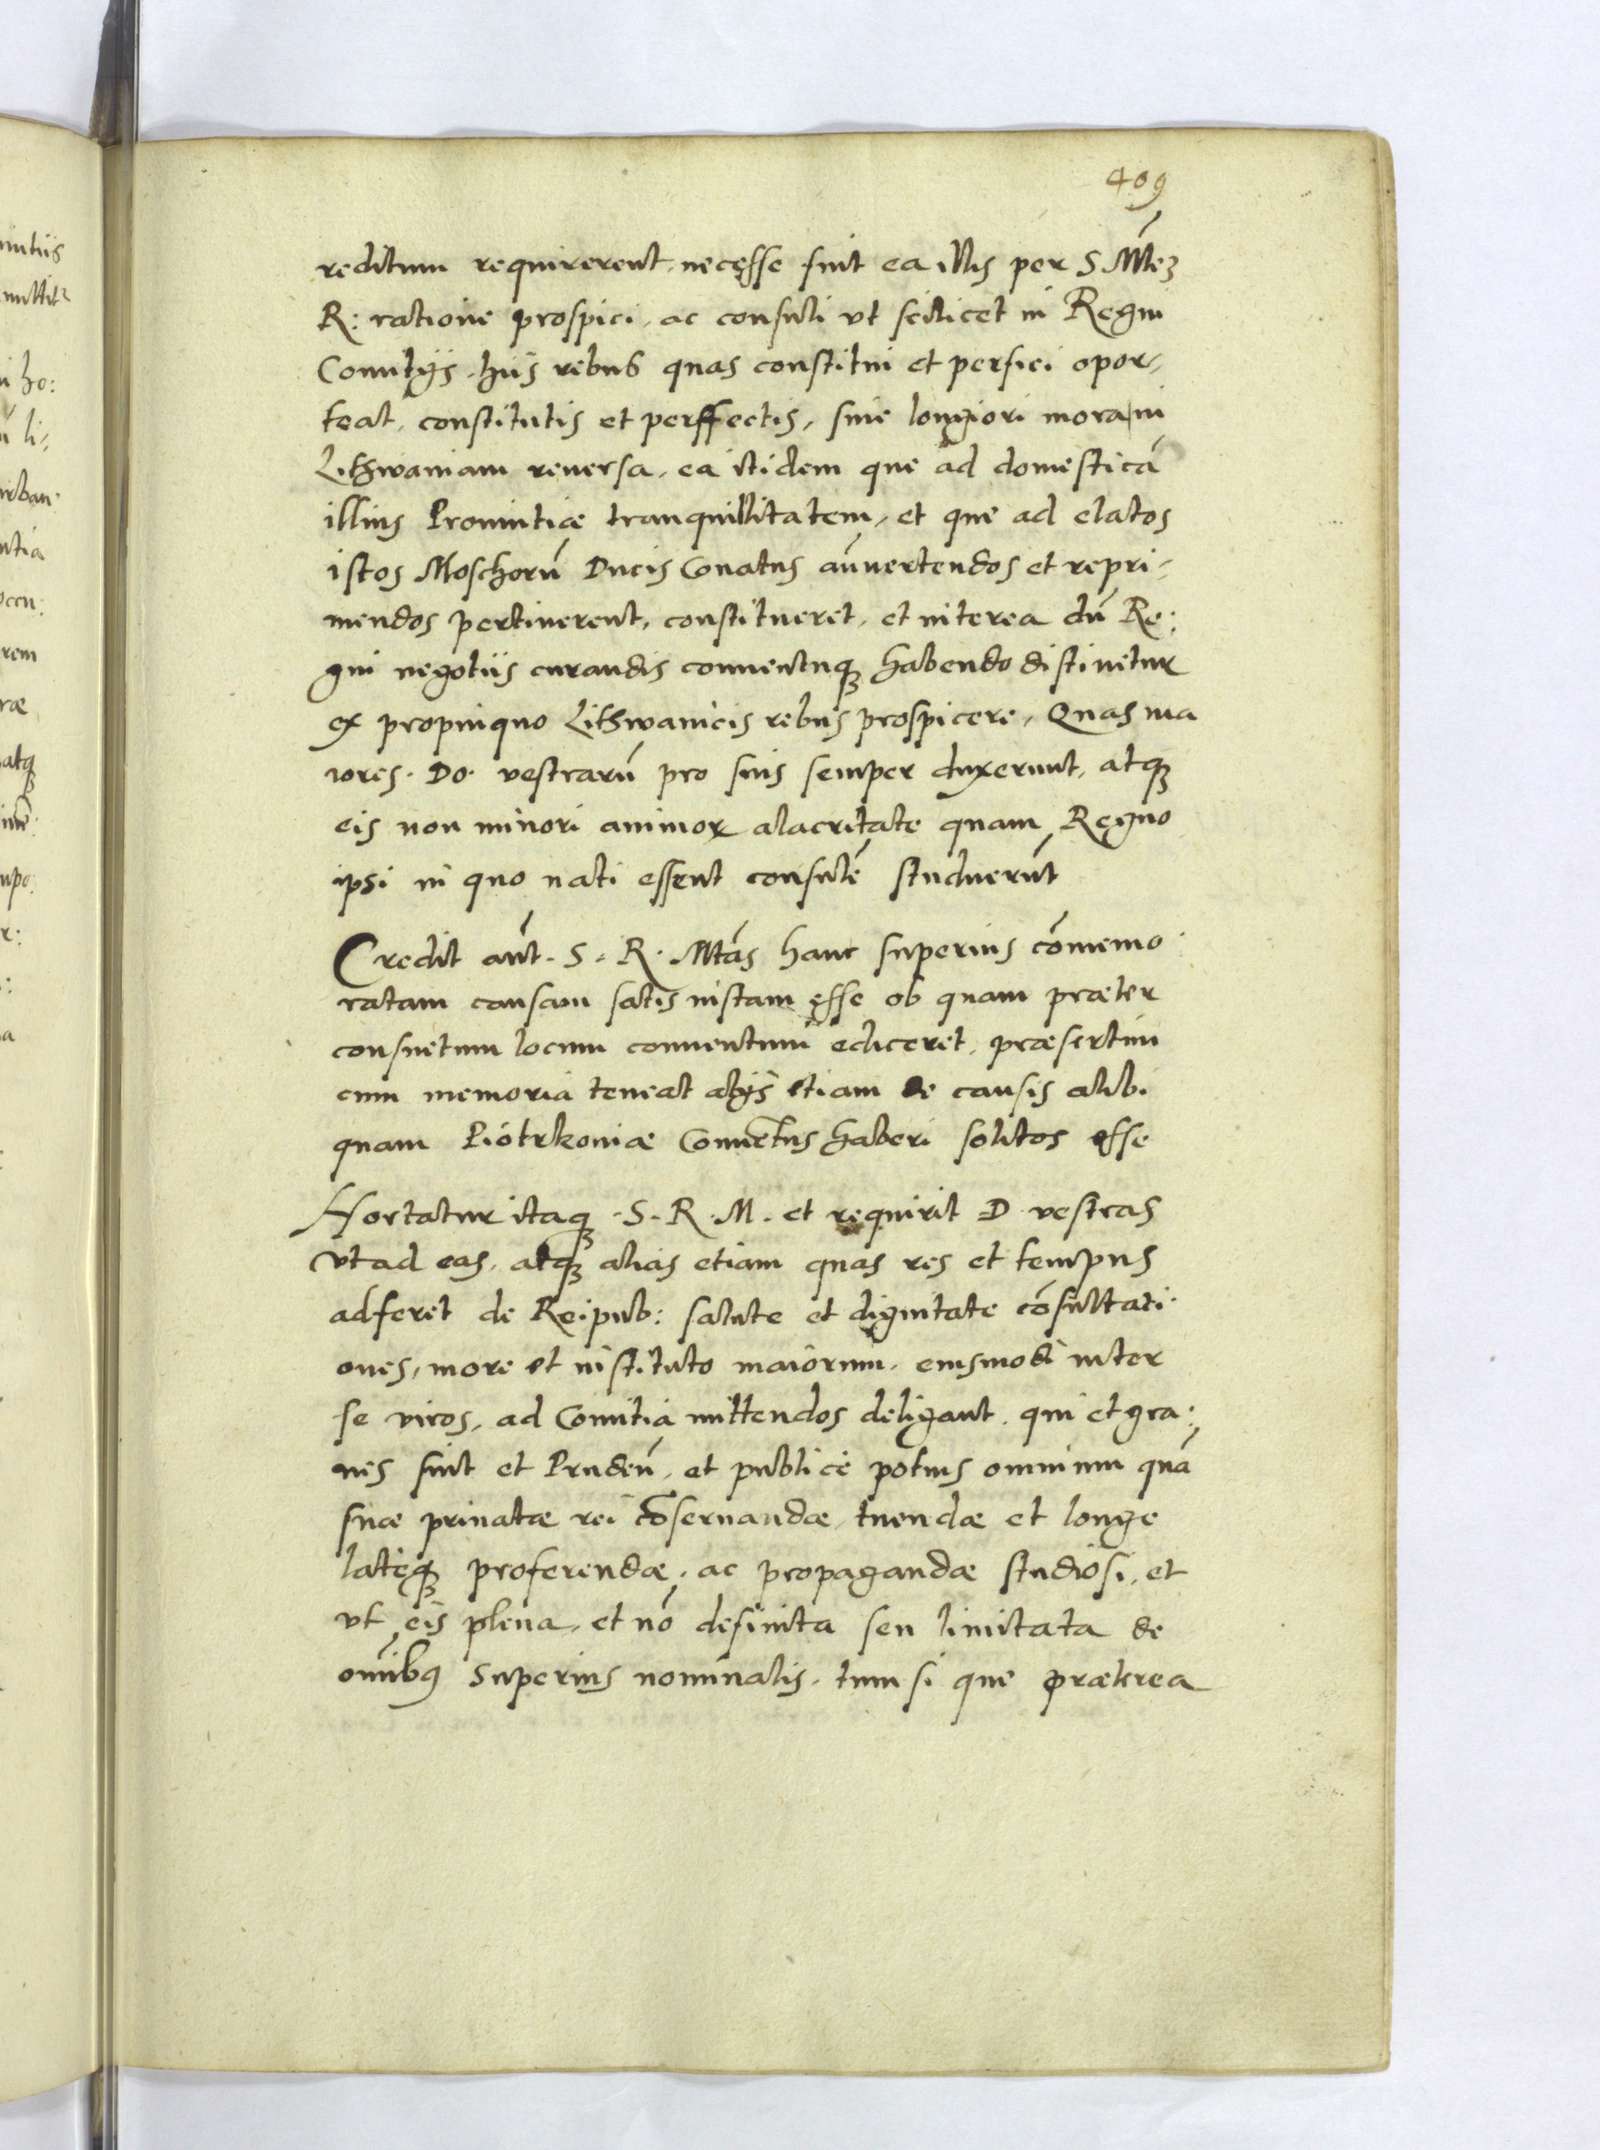 409
reditum requirerent, necesse fuit ea illis per S Mtez
R: ratione prospici, ac consuli vt scilicet in Regni
Comitÿs, hiis rebus quas constitui et perfici opor,,
teat, constitutis et perffectis, sine longiori mora, in
Lithwaniam reuersa, ea itidem que ad domesticã
illius Prouintiæ tranquillitatem, et que ad elatos
istos Moschorũ Ducis Conatus auertendos et repri,,
mendos pertinerent, constitueret, et interea dũ Re:
gni negotiis curandis conuentuq habendo distinetur
ex propinquo Lithwanicis rebus prospicere, Quas ma
iores Do. vestrarũ pro suis semper duxerunt, atq
eis non minori animor alacritate quam Regno
ipsi in quo nati essent consulẽ studuerũt
Credit aũt. S. R. Mtãs hanc superius cõmemo
ratam causam satis iustam esse ob quam præter
consuetum locum conuentum ediceret, præsertim
cum memoria teneat alÿs etiam de causis alibi
quam Piotrkouiæ Conuẽtus haberi solitos esse
Hortatur itaq. S. R. M. et requirit D vestras
vt ad eas, atq alias etiam quas res et tempus
adferet de Reipub: salute et dignitate cõsultati
ones, more et instituto maiorum, eiusmodi inter
se viros, ad Comitia mittendos deligant, qui et gra:
ues sint et Prudeñ, et publice potius omnium quã
suæ priuatæ rei cõseruandæ, tuendæ et longe
lateq proferendæ, ac propagandæ studiosi, et
vt eis plena, et nõ definita seu limitata de
omĩbus superius nominatis, tum si que præterea